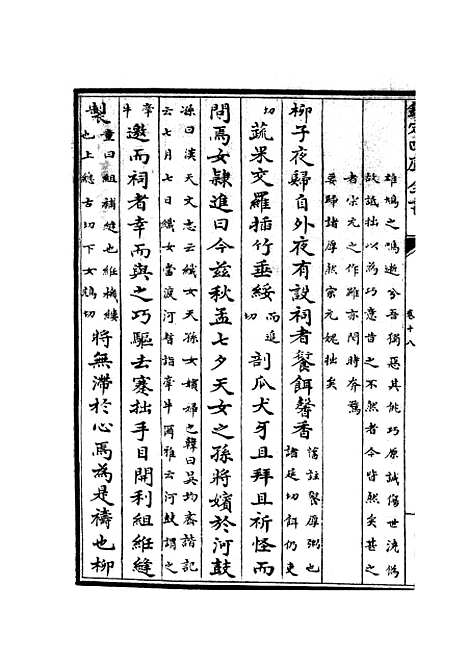 欽定四庫全書
卷十八
雄鳩之鳴逝兮吾獨惡其佻巧原誠傷世澆僞
故詆拙以為巧意昔之不然者今皆然矣甚之
者宗元之作雖亦閔時奔騖
要歸諸厚然宗元媿拙矣
柳子夜歸自外夜有設祠者饘餌馨香舊註饘厚粥也諸延切餌仍吏
切蔬果交羅插竹垂綏而追切剖瓜犬牙且拜且祈怪而
問焉女隸進曰今茲秋孟七夕天女之孫將嬪於河鼓
孫曰漢天文志云織女天孫女嬪婦也韓曰吳均齊諧記
云七月七日織女當渡河皆詣牽牛爾雅云河鼓謂之
牽牛邀而祠者幸而與之巧驅去蹇拙手目開利組絍縫
製童曰組補縫也絍機縷也上總古切下女鴆切將無滯於心焉為是禱也柳